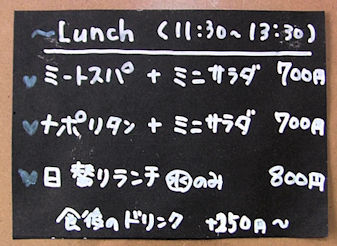 ~Lunch (11:30~13:30)
ミートスパ + ミニサラダ 700円
ナポリタン + ミニサラダ 700円
日替りランチ ㊌のみ 800円
食後のドリンク +250円~